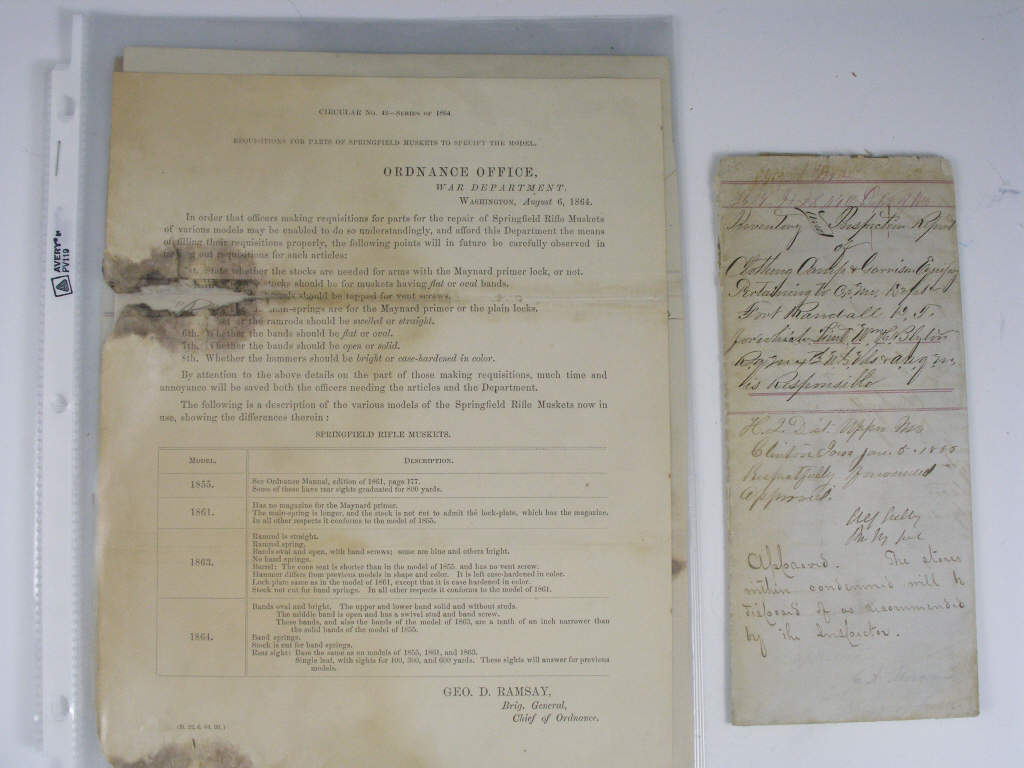 CIRCULAR No. 45—SERIES OF 1864.
REQUISITIONS FOR PARTS OF SPRINGFIELD MUSKETS TO SPECIFY THE MODEL.
ORDNANCE OFFICE,
WAR DEPARTMENT.
WASHINGTON, August 6, 1864.
In order that officers making requisitions for parts for the repair of Springfield Rifle Muskets
of various models may be enabled to do so understandingly, and afford this Department the means
of filling their requisitions properly, the following points will in future be carefully observed in
out requisitions for such articles:
whether the stocks are needed for arms with the Maynard primer lock, or not.
stocks should be for muskets having flat or oval bands.
should be tapped for vent screws.
main-springs are for the Maynard primer or the plain locks.
the ramrods should be swelled or straight.
6th. Whether the bands should be flat or oval.
7th. Whether the bands should be open or solid.
8th. Whether the hammers should be bright or case-hardened in color.
By attention to the above details on the part of those making requisitions, much time and
annoyance will be saved both the officers needing the articles and the Department.
The following is a description of the various models of the Springfield Rifle Muskets now in
use, showing the differences therein :
SPRINGFIELD RIFLE MUSKETS.
MODEL. DESCRIPTION.
1855. See Ordnance Manual, edition of 1861, page 177.
Some of these have rear sights graduated for 800 yards.
1861. Has no magazine for the Maynard primer.
The main-spring is longer, and the stock is not cut to admit the lock-plate, which has the magazine.
In all other respects it conforms to the model of 1855.
1863. Ramrod is straight.
Ramrod spring.
Bands oval and open, with band screws; some are blue and others bright.
No band springs.
Barrel: The cone seat is shorter than in the model of 1855, and has no vent screw.
Hammer differs from previous models in shape and color. It is left case-hardened in color.
Lock plate same as in the model of 1861, except that it is case hardened in color.
Stock not cut for band springs. In all other respects it conforms to the model of 1861.
1864. Bands oval and bright. The upper and lower band solid and without studs.
The middle band is open and has a swivel stud and band screw.
These bands, and also the bands of the model of 1863, are a tenth of an inch narrower than
the solid bands of the model of 1855.
Band springs.
Stock is cut for band springs.
Rear sight: Base the same as on models of 1855, 1861, and 1863.
Single leaf, with sights for 100, 300, and 600 yards. These sights will answer for previous
models.
GEO. D. RAMSAY,
Brig. General,
Chief of Ordnance.
AVERY
PV119
Inventory Inspection Report
of
Clothing Camp & Garrison Equipage
Pertaining to
Fort Randall D. T.
for which Lieut Wm
is Responsible
Clinton Iowa Jan. 5. 1865
Respectfully forwarded
Approved.
Approved. The stores
within condemned will be
disposed of as recommended
by the Inspector.